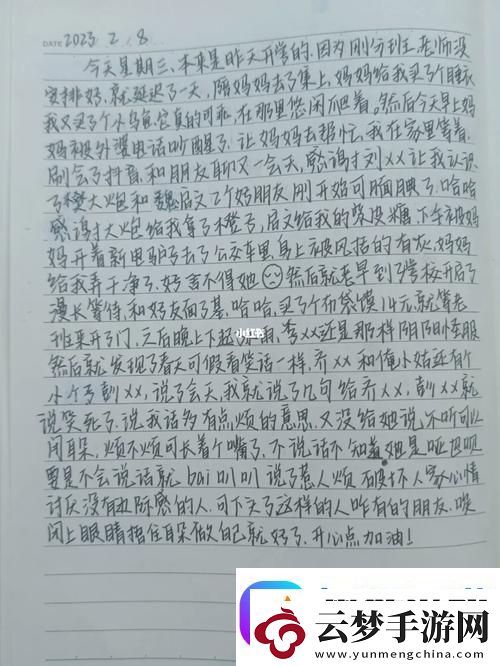 DATE 2023 2 8
今天星期三、本来是昨天开学的、因为刚分班、老师没
安排好、就延迟了一天，陪妈妈去了集上，妈妈给我买了个睡衣
我又买了个小乌龟它真的可乖、在那里悠闲爬着。然后今天早上妈
妈被外婆电话叫醒了、让妈妈去帮忙、我在家里等着.
刷会了抖音、和朋友聊又一会天，感谢于刘××让我认识
了樊大炮和魏启文2个好朋友刚开始可腼腆了、哈哈
感谢大炮给我拿了橙子，启文给我的柴皮糖、下午被妈
妈开着新电驴子去了公交车里身上被风括的有灰、妈妈
给我弄干净了、好舍不得她 然后就老早到了学校开启了
漫长等待、和好友面了基、哈哈、买了个布袋馍14元就等老
班来开了门、之后晚上下起雨、李××还是那样阴阳怪服
然后就发现了春天可假看笑话一样、乔××和俺小姑还有个
小个子彭××，说了会天，我就说了几句给乔××，彭××就
说笑死了、说我话多有点烦的意思、又没给她说、不听可以
闭耳朵，烦不烦可长着个嘴了、不说话不知道她是哑巴呗
要是不会说话就bai叭叭说了惹人烦 破坏人家心情
讨厌没有边际感的人、可下头了这样的人咋有的朋友、唉
闭上眼睛捂住耳朵做自己就好了、开心点加油！
小红书
云梦手游网
www.yunmengchina.com